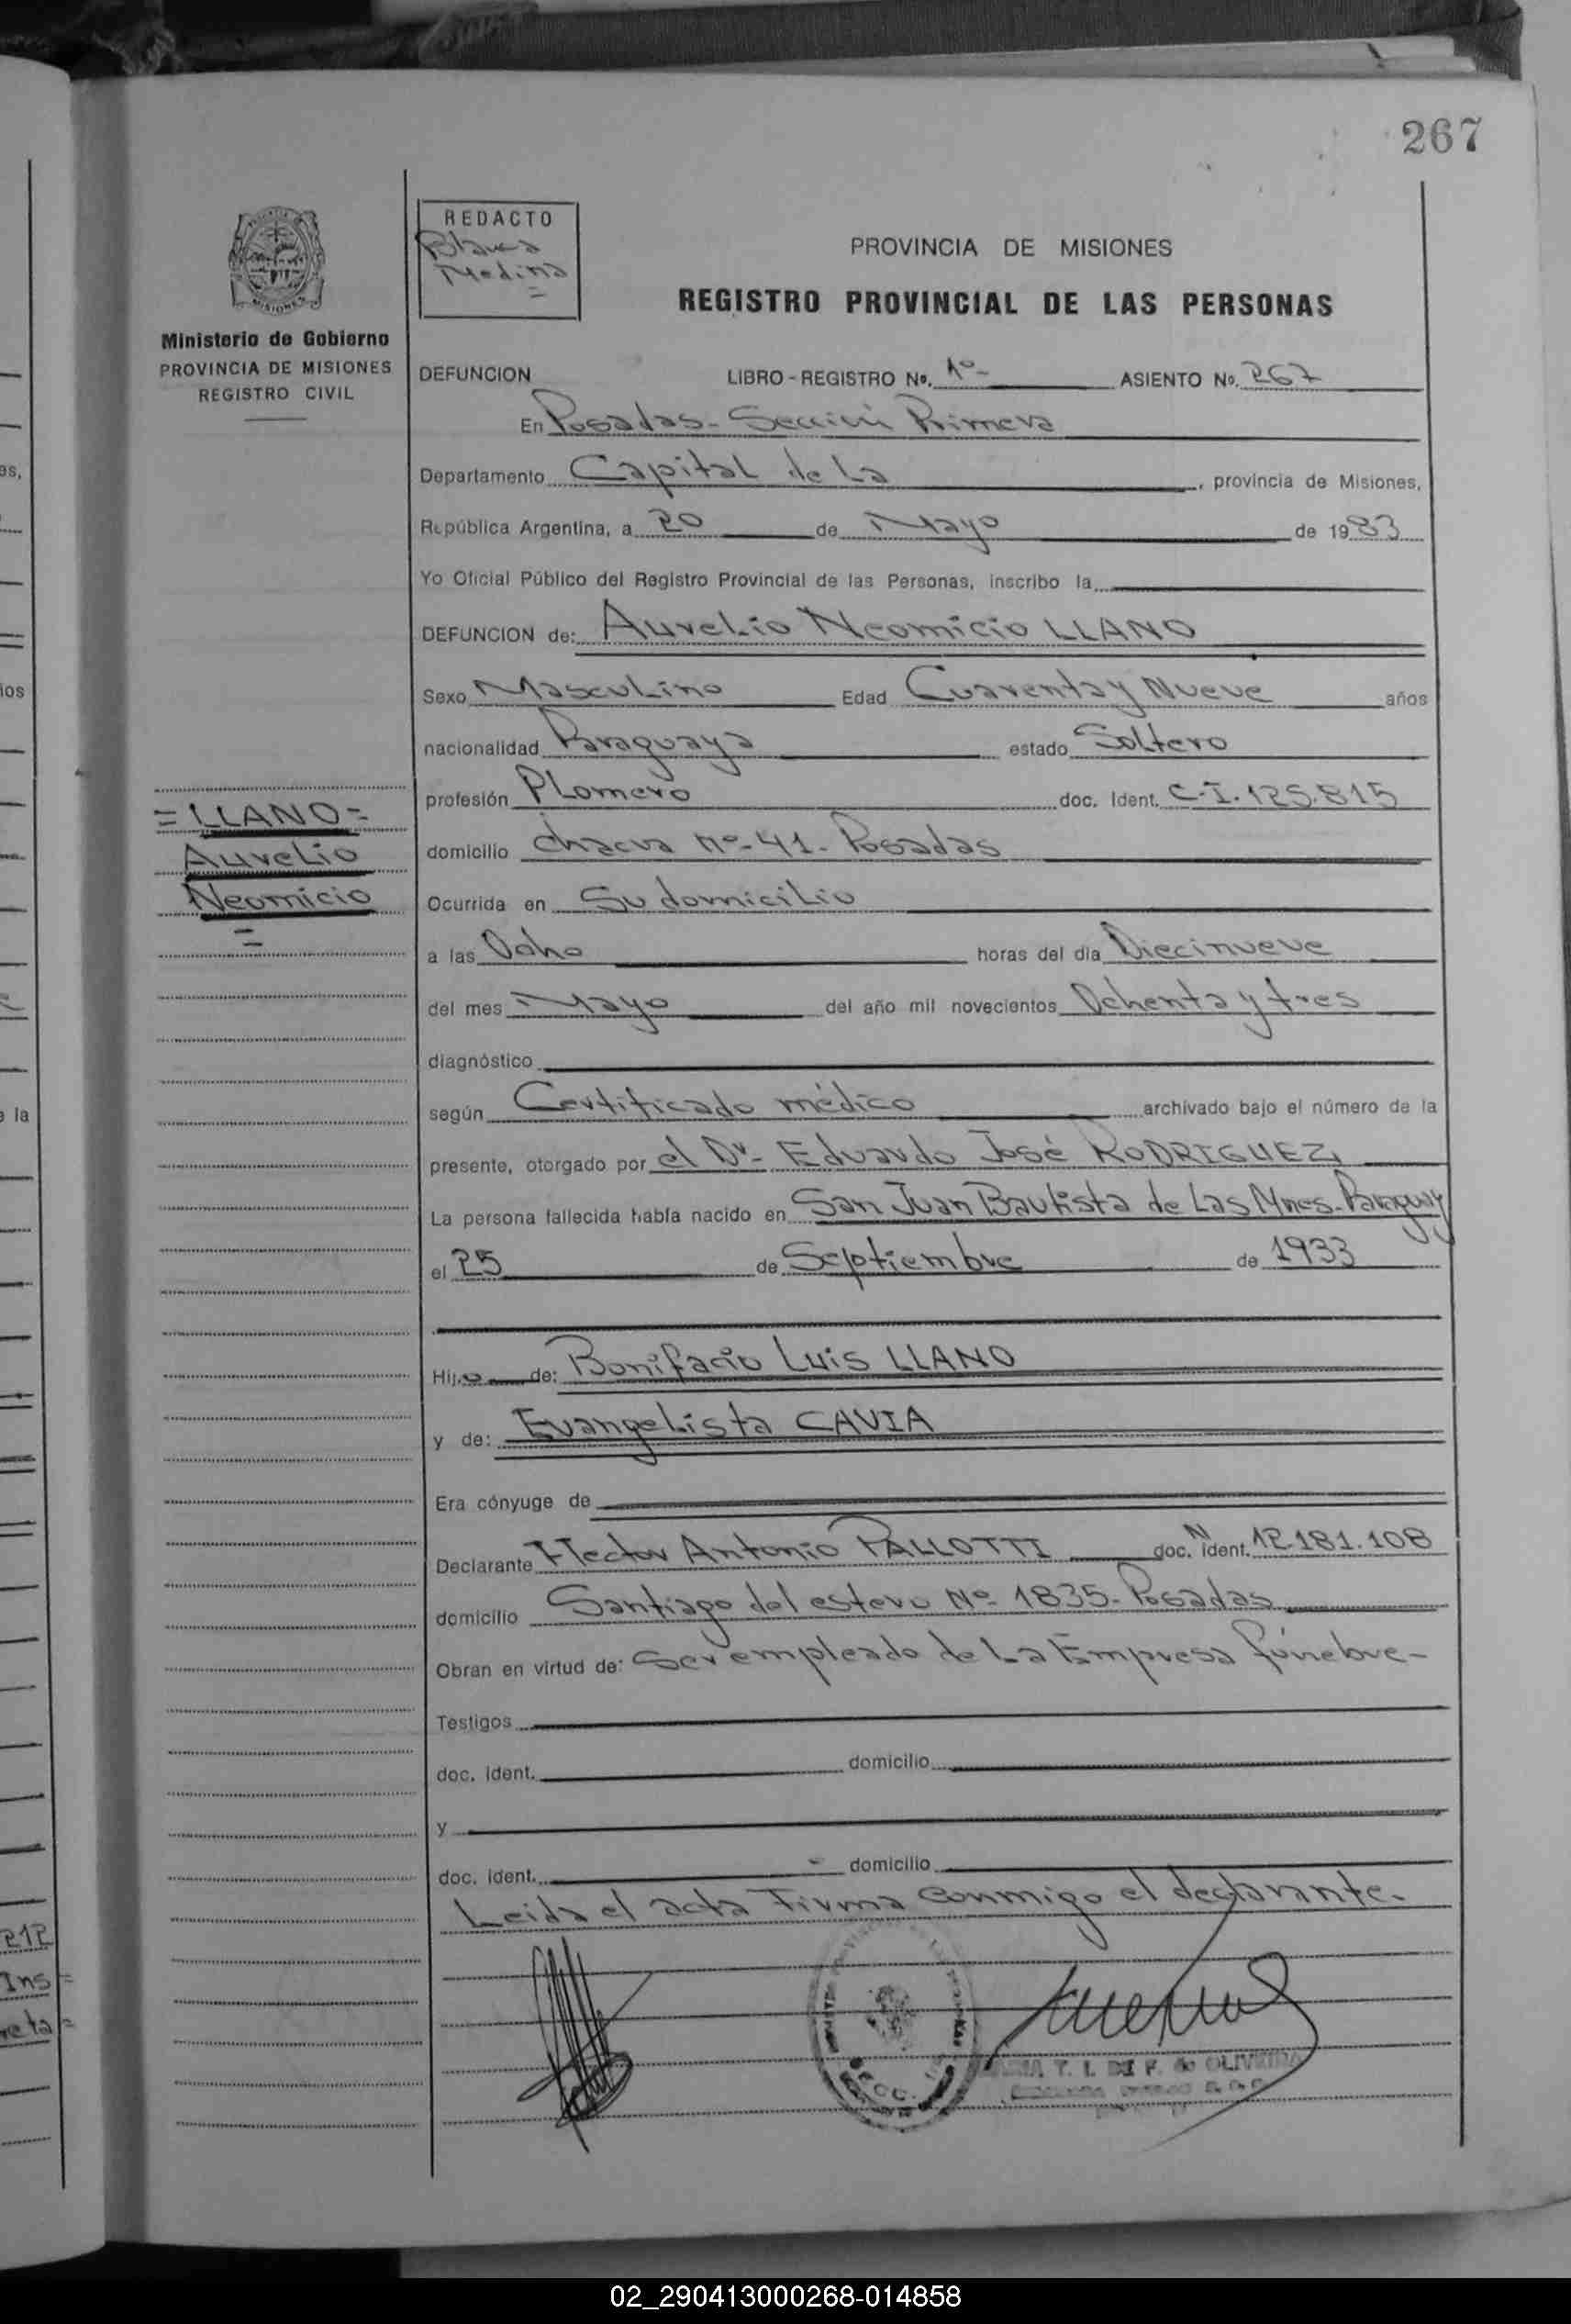 267
REDACTO
Blanca
Medina
=
PROVINCIA DE MISIONES
REGISTRO PROVINCIAL DE LAS PERSONAS
Ministerio de Gobierno
PROVINCIA DE MISIONES
REGISTRO CIVIL
DEFUNCION LIBRO - REGISTRO No. 1º- ASIENTO No. 267
En Posadas - Sección Primera
Departamento Capital de La, provincia de Misiones,
República Argentina, a 20 de Mayo de 1983
Yo Oficial Público del Registro Provincial de las Personas, inscribo la
DEFUNCION de: Aurelio Neomicio LLANO
Sexo Masculino Edad Cuarenta y Nueve años
nacionalidad Paraguaya estado Soltero
profesión Plomero doc. Ident. C.I. 125.815
= LLANO =
Aurelio
Neomicio
=
domicilio chacra nº 41. Posadas
Ocurrida en Su domicilio
a las Ocho horas del día Diecinueve
del mes Mayo del año mil novecientos Ochenta y tres
diagnóstico
según Certificado médico archivado bajo el número de la
presente, otorgado por el Dr. Eduardo José RODRIGUEZ
La persona fallecida había nacido en San Juan Bautista de Las Mnes. Paraguay
el 25 de Septiembre de 1933
Hijo de: Bonifacio Luis LLANO
y de: Evangelista CAVIA
Era cónyuge de
Declarante Hector Antonio PALLOTTI doc. N ident. 12.181.108
domicilio Santiago del estero Nº 1835. Posadas
Obran en virtud de: Ser empleado de La Empresa fúnebre-
Testigos
doc. ident. domicilio
y
doc. ident. domicilio
Leida el acta Firma conmigo el declarante.
T. I. DE F. de OLIVEIRA
as,
ios
e la
212
Ins =
reta =
02_290413000268-014858